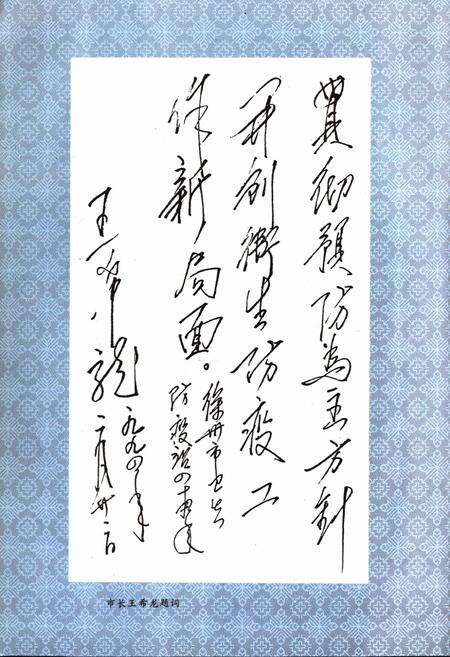 貫彻預防為主方針
開創衛生防疫工
作新局面。
徐州市卫生
防疫站四十周年
王希龍
一九九四年
二月廿二日
市长王希龙题词